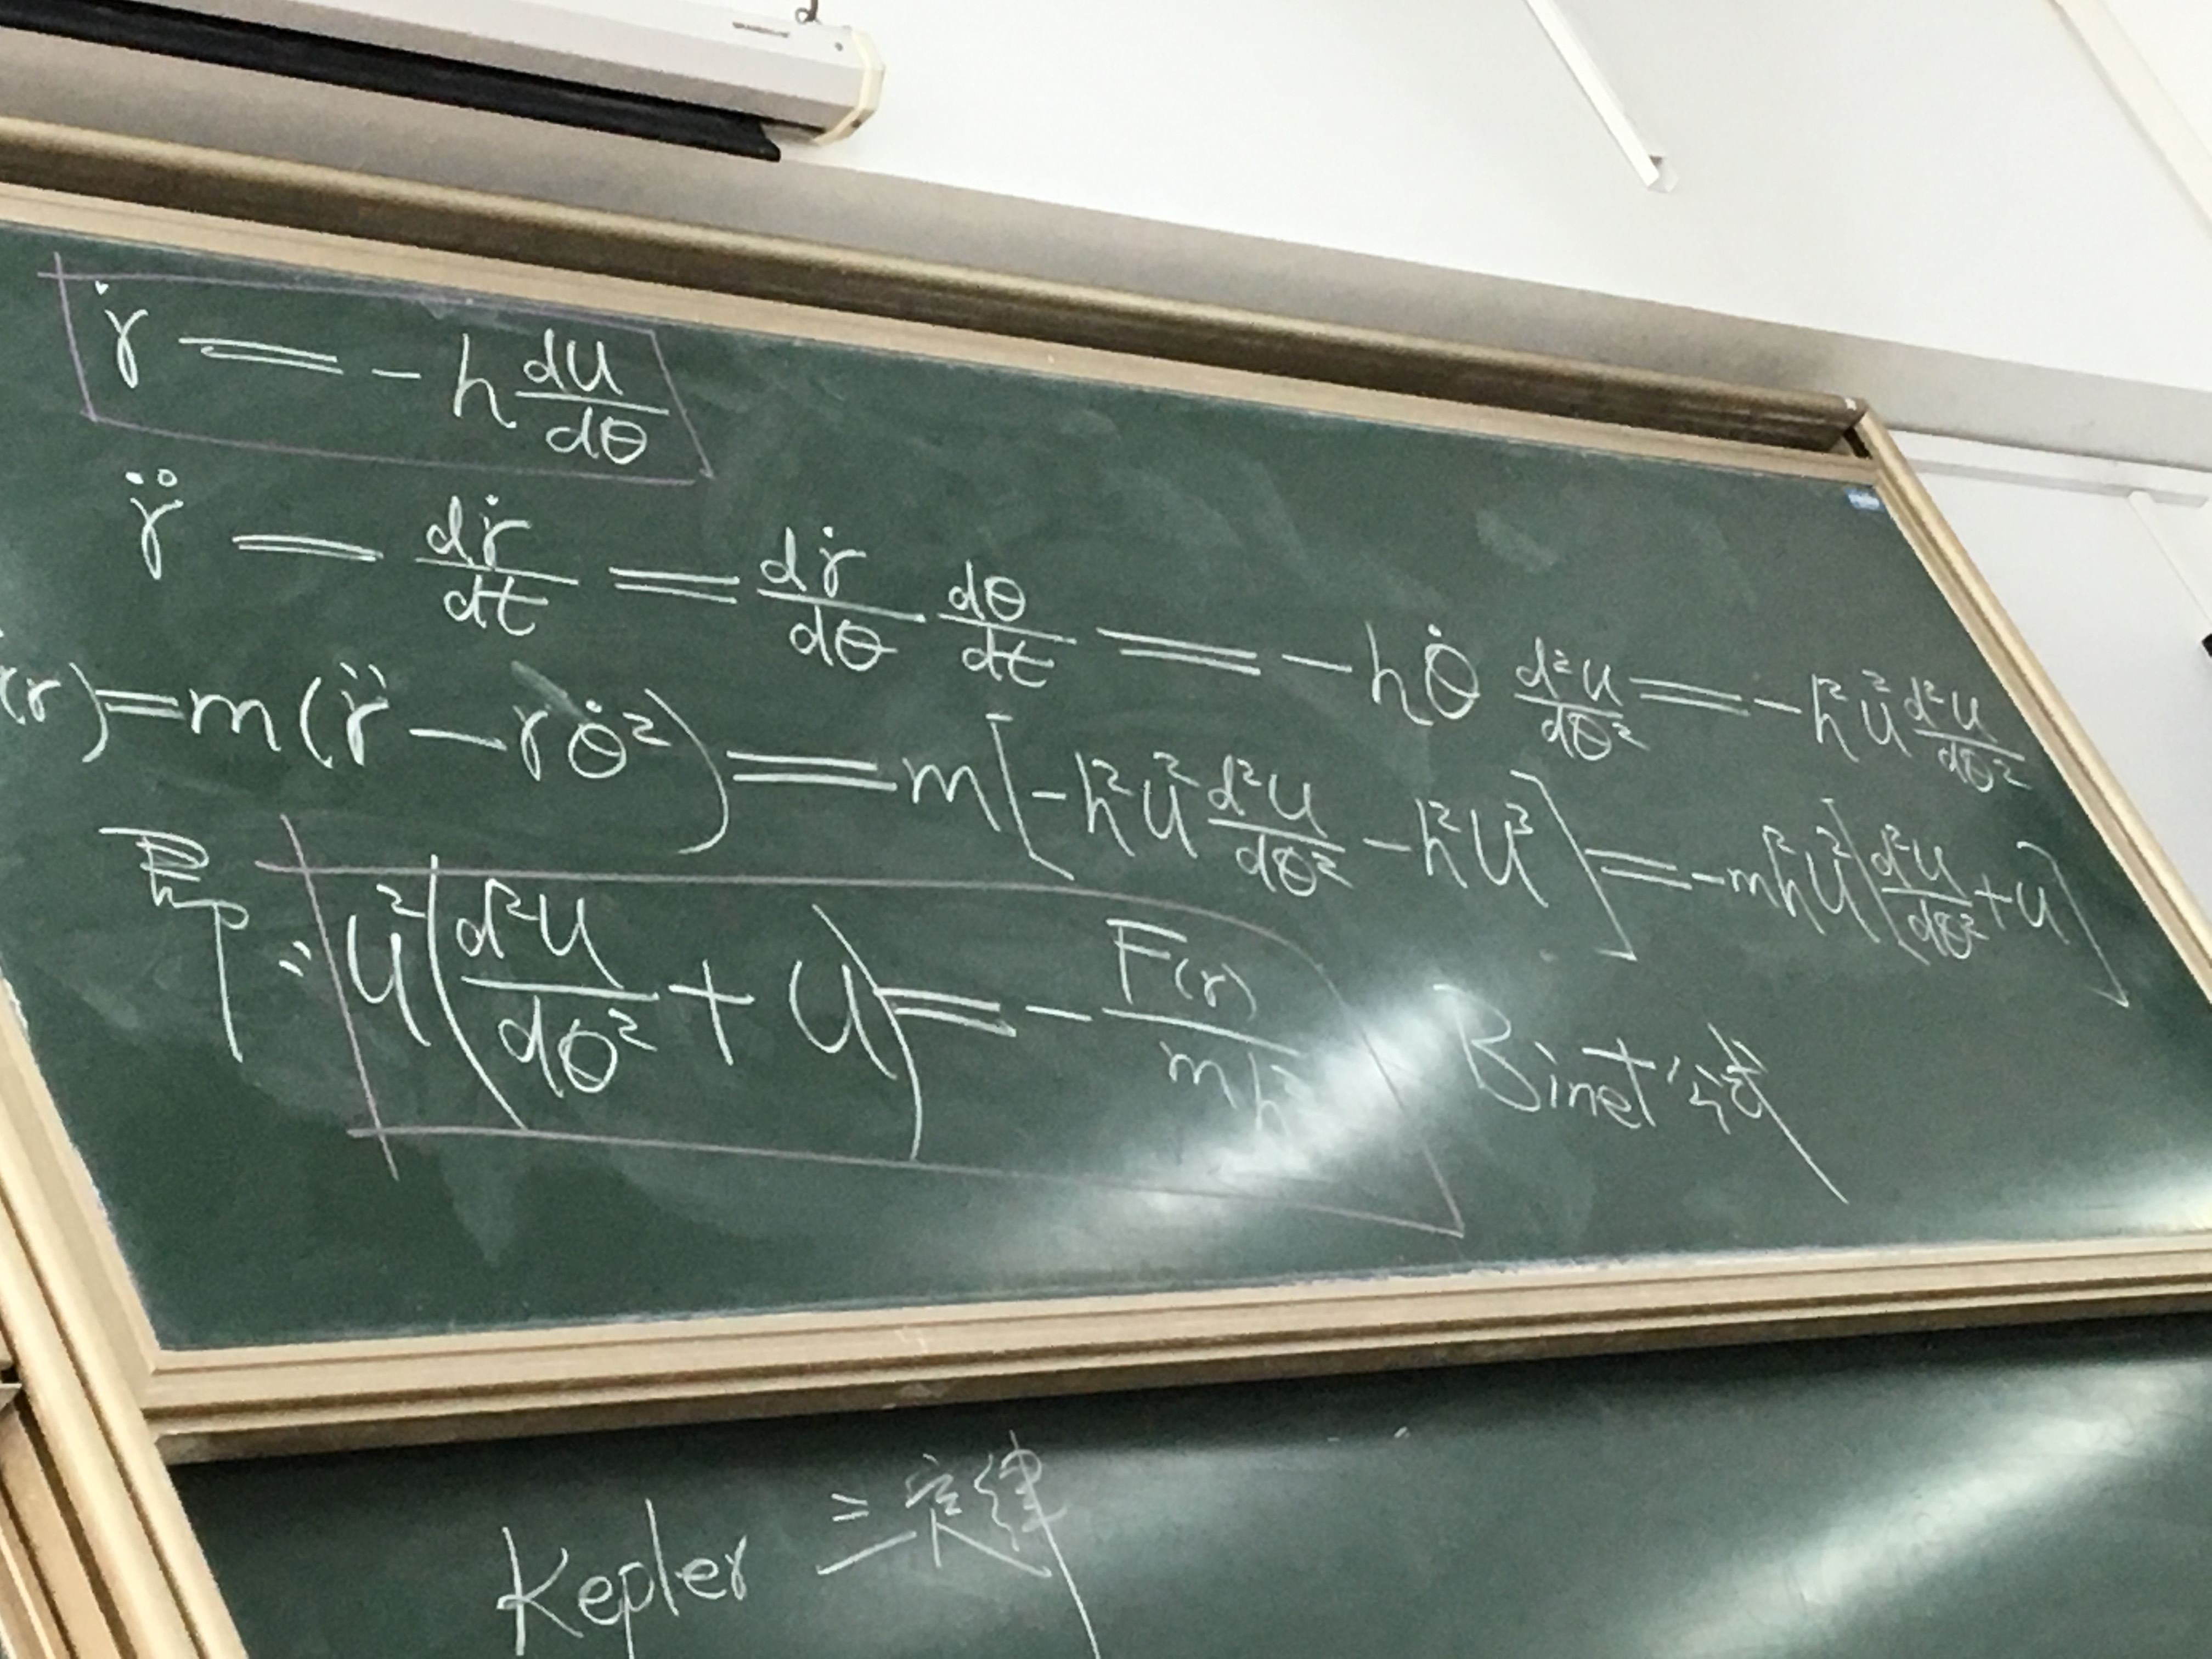 ṙ = -h du/dθ
r̈ = dṙ/dt = dṙ/dθ dθ/dt = -hθ̇ d²u/dθ² = -h²u² d²u/dθ²
(r) = m(r̈ - rθ̇²) = m[-h²u² d²u/dθ² - h²u³] = -mh²u²[d²u/dθ² + u]
即: u²(d²u/dθ² + u) = - F(r)/mh Binet公式
Kepler 三定律